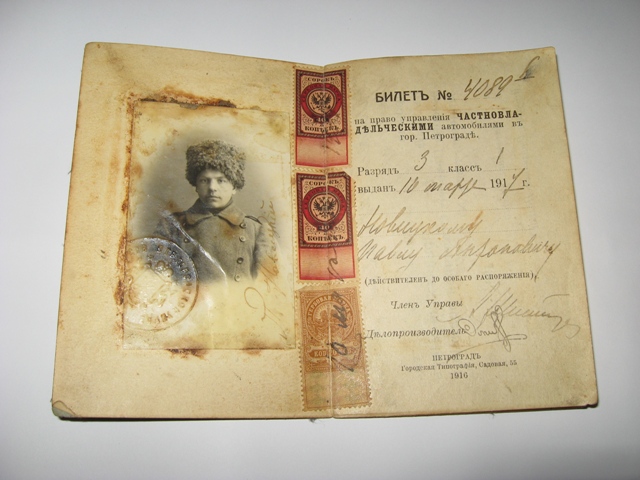 СОРОКЪ
40
КОПѢЕКЪ
СОРОКЪ
40
КОПѢЕКЪ
БИЛЕТЪ № 4089
на право управленія ЧАСТНОВЛА-
ДѢЛЬЧЕСКИМИ автомобилями въ
гор. Петроградѣ.
Разрядъ 3 классъ 1
выданъ 16 марта 1917 г.
Павлу
(ДѢЙСТВИТЕЛЕНЪ ДО ОСОБАГО РАСПОРЯЖЕНІЯ).
Членъ Управы
Дѣлопроизводитель
ПЕТРОГРАДЪ
Городская Типографія, Садовая, 55
1916